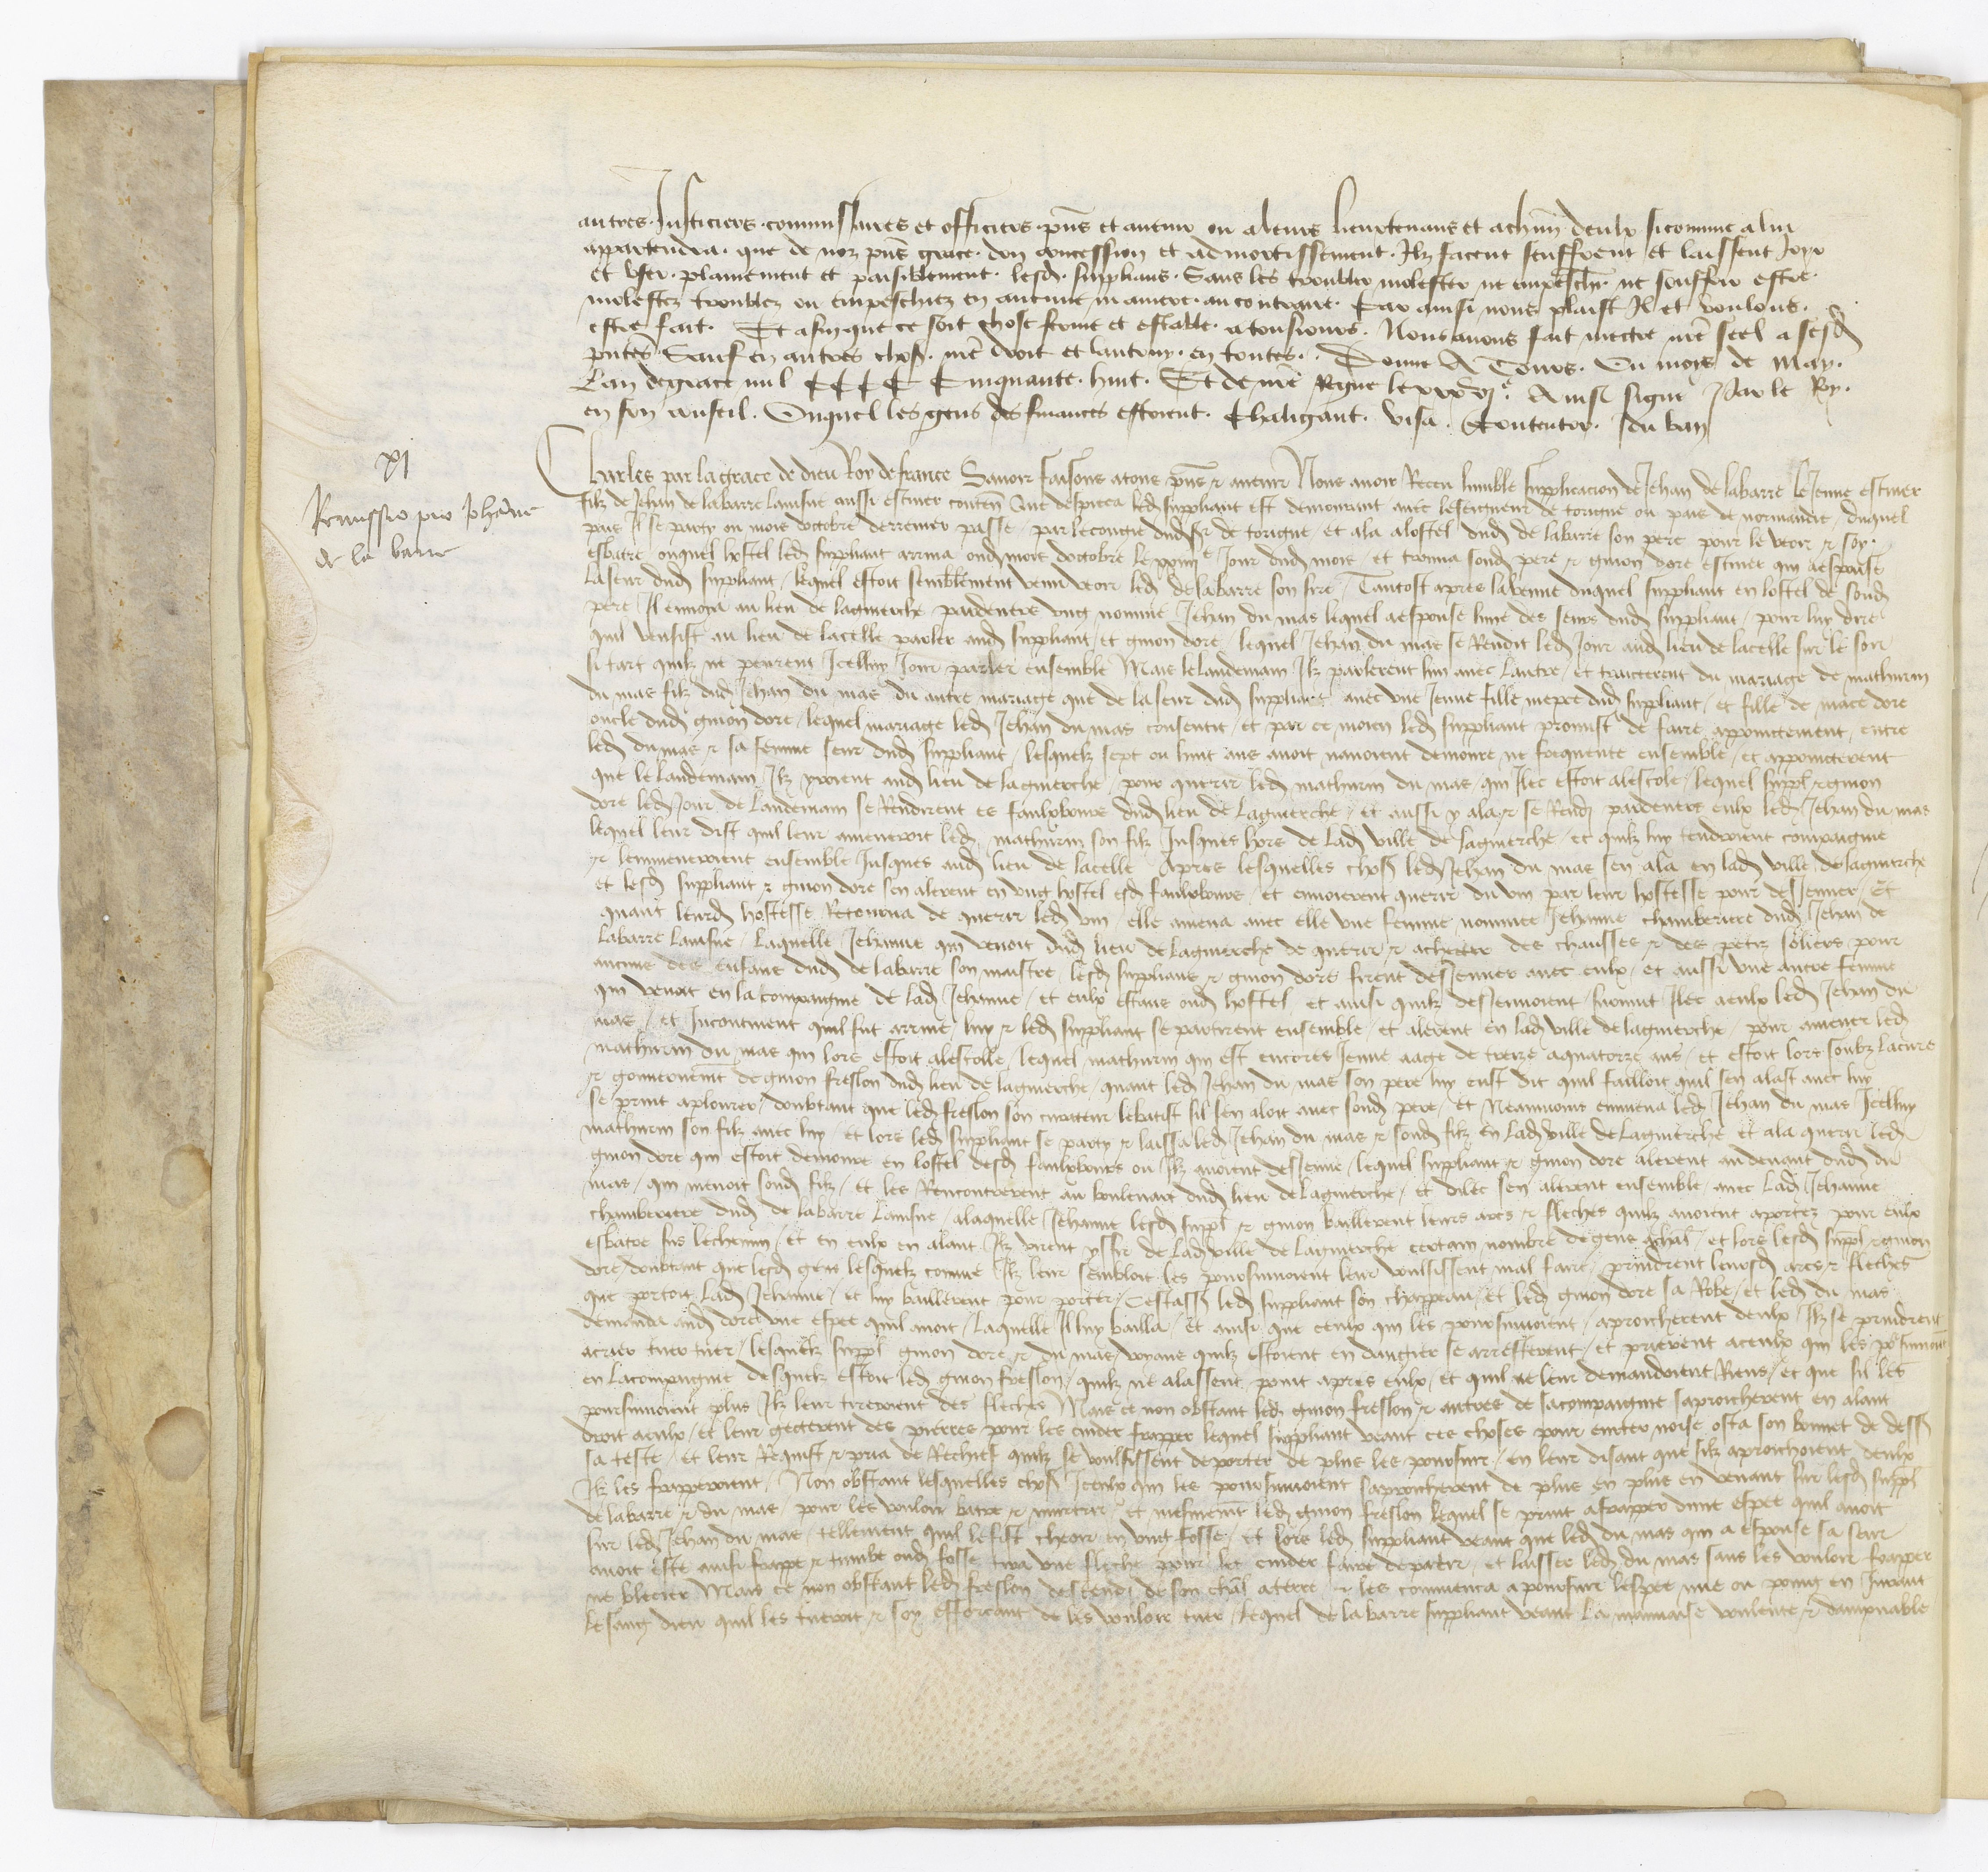 autres Justiciers commissaires et officiers pn̄s et avenir ou a leurs lieuxtenans et achūn deulx sicomme a lui
appartendra que de noz pn̄s grace don concession et admortissement Ilz facent seuffrent et laissent Joyr
et user plainement et paisiblement lesd supplians Sans les troubler molester ne empeschr ne souffrir estre
molestez troublez ou empeschiez en aucune maniere au contraire Car ainsi nous plaist Il et voulons
estre fait Et afin que ce soit chose ferme et estable a tousjours Nous avons fait mectre nr̄e seel a cesd
pn̄tes Sauf en autres chos nr̄e droit et lautruy en toutes Donne A Tours Ou mois de May
Lan de grace mil CCCC Cinquante huit Et de nr̄e Regne le xxxvj e Ainsi signe Par le Roy
en son conseil Ouquel les gens des finances estoient Chaligant visa Contentor du ban
xj
Remissio pro Johanne
de la barre
Charles par la grace de dieu Roy de france Savoir faisons a tous pn̄s & avenir Nous avoir Receu lumble supplicacion de Jehan de labarre le Jeune escuier
filz de Jehan de labarre laisne aussi escuier conten̄ Que despieca led suppliant est demourant avec le seigneur de torigne ou pais de normandie duquel
pais Il se party ou mois doctobre derrenier passe par le congie dud sr de torigne et ala a lostel dud de labarre son pere pour le veoir & soy
esbatre ouquel hostel led suppliant arriva oud mois doctobre le Jour dud mois et trouva sond pere & guion dore escuier qui a espouse
la seur dud suppliant lequel estoit semblement venu veoir led de labarre son sire Tantost apres la venue duquel suppliant en lostel de sond
pere Il envoya au lieu de laguierche pardevers ung nomme Jehan du mas lequel a espouse lune des seurs dud suppliant pour luy dire
quil vensist au lieu de lacelle parler aud suppliant et guion dore lequel Jehan du mas se Rendit led Jour aud lieu de lacelle sur le soir
si tart quilz ne peurent Icelluy Jour parler ensemble Mais le landemain Ilz parlerent lun avec lautre et traicterent du mariage de mathurin
du mas filz dud Jehan du mas du autre mariage que de la seur dud suppliant avec une Jeune fille niepce dud suppliant et fille de mace dore
oncle dud guion dore lequel mariage led Jehan du mas consentit et par ce moien led suppliant promist de faire appoinctement entre
led du mas & sa femme seur dud suppliant lesquelz sept ou huit ans avoit navoient demoure ne frequente ensemble et appoincterent
que le landemain Ilz yroient aud lieu de laguierche pour querir led mathurin du mas qui Ilec estoit a lescole lequel suppl & guion
dore led Jour de landemain se Rendirent es faulxbours dud lieu de laguierche et aussi y ala & se Rend pardevers eulx led Jehan du mas
lequel leur dist quil leur ameneroit led mathurin son filz Jusques hors de lad ville de laguierche et quilz luy tendroient compaignie
& lenmeneroient ensemble Jusques aud lieu de lacelle Apres lesquelles chos led Jehan du mas sen ala en lad ville de laguierche
et lesd suppliant & guion dore sen alerent en ung hostel esd faulxbours et envoierent querir du vin par leur hostesse pour desjeuner Et
quant leurd hostesse Retourna de querir led vin elle amena avec elle une femme nommee Jehanne chamberiere dud Jehan de
labarre laisne laquelle Jehanne qui venoit dud lieu de laguierche de querir & achecter des chausses & des petiz soliers pour
aucuns des enfans dud de labarre son maistre lesd supplians & guion dore firent desjeuner avec eulx et aussi une autre femme
qui venoit en la compaignie de lad Jehanne et eulx estans oud hostel et ainsi quilz desjeunoient survint Ilec a eulx led Jehan du
mas et Incontinent quil fut arrive luy & led suppliant se partirent ensemble et alerent en lad ville de laguierche pour amener led
mathurin du mas qui lors estoit a lescolle lequel mathurin qui est encores Jeune aage de treize a quatorze ans et estoit lors soubz la cure
& gouvernemt de guion freslon dud lieu de laguierche quant led Jehan du mas son pere luy eust dit quil failloit quil sen alast avec luy
se print a plourer doubtant que led freslon son curateur le batist sil sen aloit avec sond pere Et Neanmoins enmena led Jehan du mas Icelluy
mathurin son filz avec luy et lors led suppliant se party & laissa led Jehan du mas & sond filz en lad ville de laguierche et ala querir led
guion dore qui estoit demoure en lostel desd faulxbours ou Ilz avoient desjeune lequel suppliant & guion dore alerent au devant dud du
mas qui menoit sond filz et les Rencontrerent au boulevart dud lieu de laguierche et dilec sen alerent ensemble avec lad Jehanne
chamberiere dud de labarre laisne a laquelle Jehanne lesd suppl & guion baillerent leurs arcs & fleches quilz avoient aportez pour eulx
esbatre sus le chemin et en eulx en alant Ilz virent yssir de lad ville de laguierche certain nombre de gens a chal et lors lesd suppl & guion
dore doubtant que lesd gens lesquelz comme Ilz leur sembloit les poursuivoient leur voulsissent mal faire prindrent leursd arcs & fleches
que portoit lad Jehanne et luy baillerent pour porter Cestass led suppliant son chappeau et led guion dore sa Robe et led du mas
demanda aud dore une espee quil avoit laquelle Il luy bailla et ainsi que ceulx qui les poursuivoient aproucherent deulx Ilz se prindrent
a crier tuer tuer lesquelz suppl guion dore & du mas voyans quilz estoient en dangier se arresterent et prierent a ceulx qui les poursuivoient
en la compaignie desquelz estoit led guion freslon quilz ne alassent point apres eulx et quil ne leur demandoient Riens et que sil les
poursuivoient plus Ilz leur tireroient des fleches Mais ce non obstant led guion freslon & autres de sa compaignie saproucherent en alant
droit a eulx et leur gecterent des pierres pour les cuider frapper lequel suppliant veant ces choses pour eviter noise osta son bonnet de dess
sa teste et leur Requist & pria de Rechief quilz se voulsissent deporter de plus les poursuir en leur disant que silz aprouchoient deulx
Ilz les frapperoient Non obstant lesquelles chos Iceulx qui les poursuivoient saproucherent de plus en plus en venant sur lesd suppl
de labarre & du mas pour les vouloir batre & murtrir et mesmemt led guion freslon lequel se print a frapper dune espee quil avoit
sur led Jehan du mas tellement quil le fist cheoir en ung fosse et lors led suppliant veant que led du mas qui a espouse sa seur
avoit este ainsi frappe & tumbe oud fosse tira une fleche pour les cuider faire departir et laisser led du mas sans les vouloir frapper
ne blecier Mais ce non obstant led freslon descend de son chal a terre & les commenca a poursuir lespee nue ou poing en Jurant
le sang dieu quil les tueroit & soy efforcant de les vouloir tuer Lequel de labarre suppliant veant la mauvaise voulente & dampnable